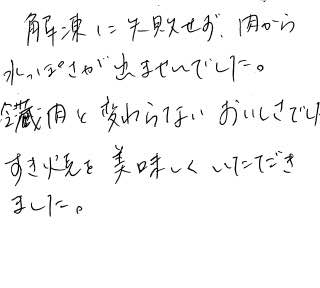 解凍に失敗せず、肉から
水っぽさが出ませんでした。
冷蔵肉と変わらない おいしさでし
すき焼を美味しくいただき
ました。